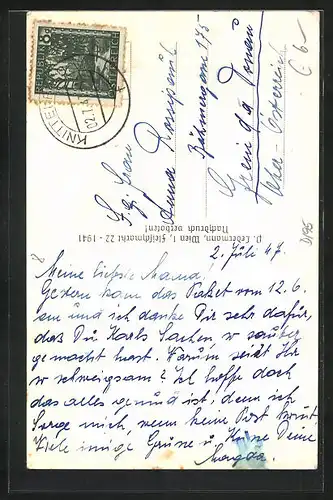 8
KNITTELF
02.7.4
Fr. Frau
Anna
Böhmergasse 175
Grein a d Donau
Ober-Österreich
6-
D/95
P. Ledermann, Wien I, Fleischmarkt 22 - 1941
Nachdruck verboten!
2. Juli 47.
Meine liebste Mama!
Gestern kam das Paket vom 12.6.
an und ich danke Dir sehr dafür,
daß Du Karls Sachen so sauber
gemacht hast. Warum seid Ihr
so schweigsam? Ich hoffe doch
das alles gesund ist, denn ich
Sorge mich, wenn keine Post kommt.
Viele innige Grüsse u. Küsse Deine
Magda.